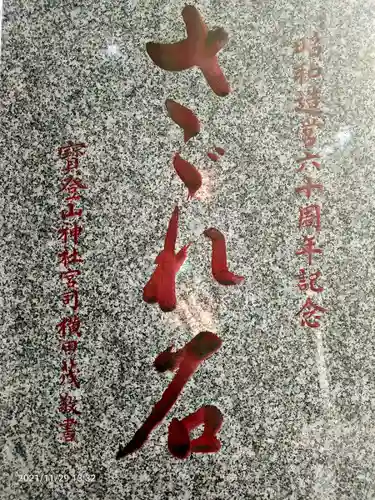 昭和造営六十周年記念
さざれ石
寶登山神社宮司横田茂敬書
2021/11/29 13:32